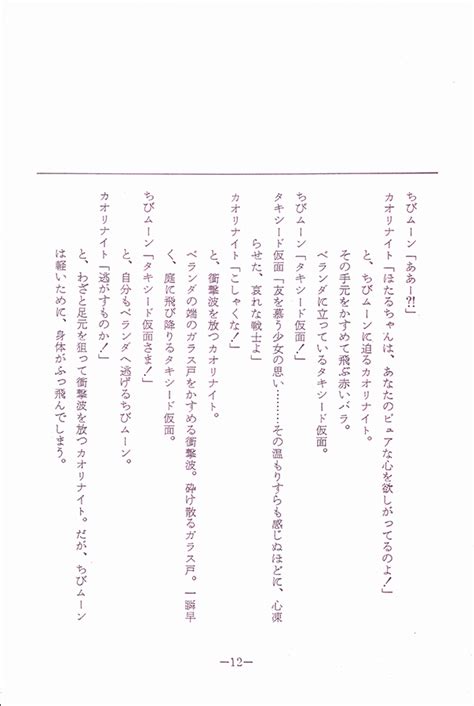 ちびムーン「ああー?!」
カオリナイト「ほたるちゃんは、あなたのピュアな心を欲しがってるのよ!」
と、ちびムーンに迫るカオリナイト。
その手元をかすめて飛ぶ赤いバラ。
ベランダに立っているタキシード仮面。
ちびムーン「タキシード仮面さま!」
タキシード仮面「友を慕う少女の思い………その温もりすらも感じぬほどに、心凍
らせた、哀れな戦士よ」
カオリナイト「こしゃくな!」
と、衝撃波を放つカオリナイト。
ベランダの端のガラス戸をかすめる衝撃波。砕け散るガラス戸。一瞬早
く、庭に飛び降りるタキシード仮面。
ちびムーン「タキシード仮面さま!」
と、自分もベランダへ逃げるちびムーン。
カオリナイト「逃がすものか!」
と、わざと足元を狙って衝撃波を放つカオリナイト。だが、ちびムーン
は軽いために、身体がふっ飛んでしまう。
—12—